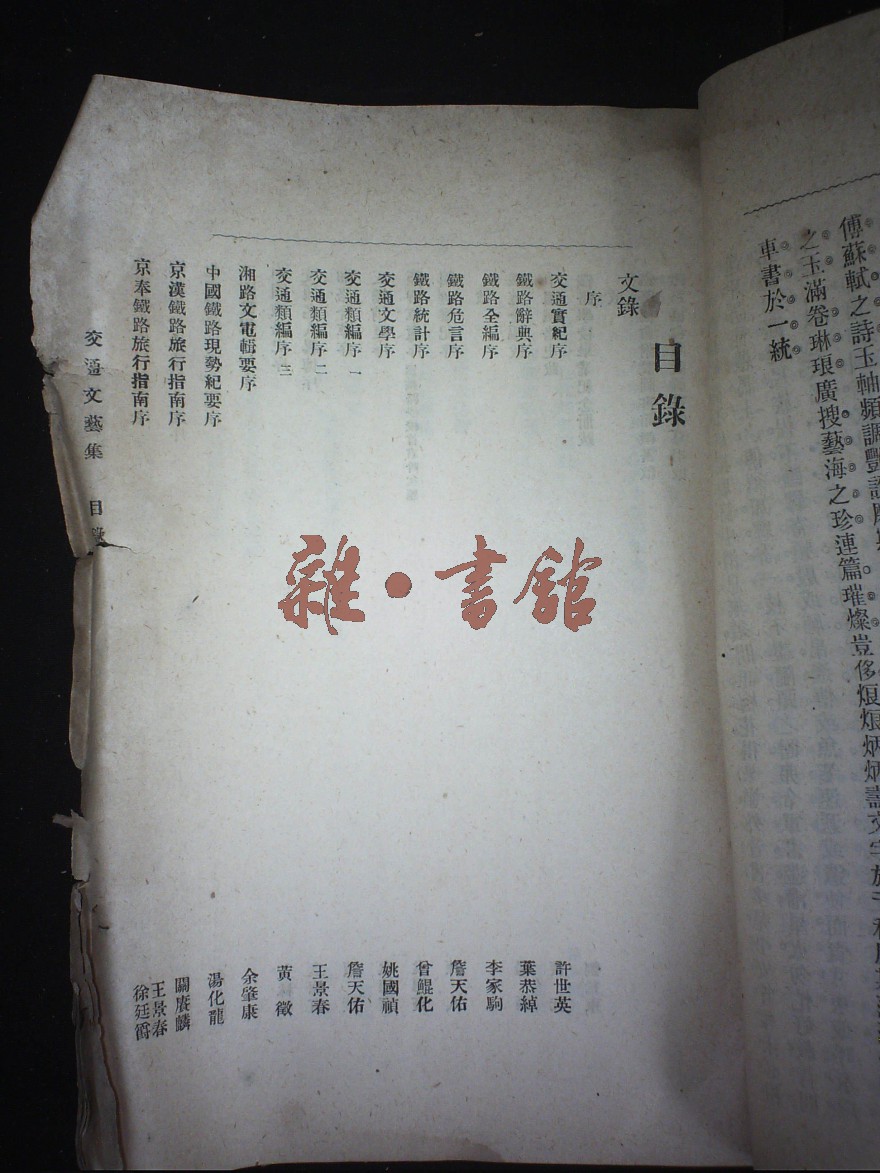 傅蘇軾之詩玉軸頻調豔
之玉滿卷琳琅廣搜藝海之珍連篇璀燦豈侈烺烺炳炳壽文字於千
車書於一統
目錄
文錄
序
交通實紀序 許世英
鐵路辭典序 葉恭綽
鐵路全編序 李家駒
鐵路危言序 詹天佑
鐵路統計序 曾鯤化
交通文學序 姚國禎
交通類編序一 詹天佑
交通類編序二 王景春
交通類編序三 黃徵
湘路文電輯要序 余肇康
中國鐵路現勢紀要序 湯化龍
京漢鐵路旅行指南序 關賡麟
京奉鐵路旅行指南序 王景春 徐廷爵
交通文藝集 目錄
雜·書館